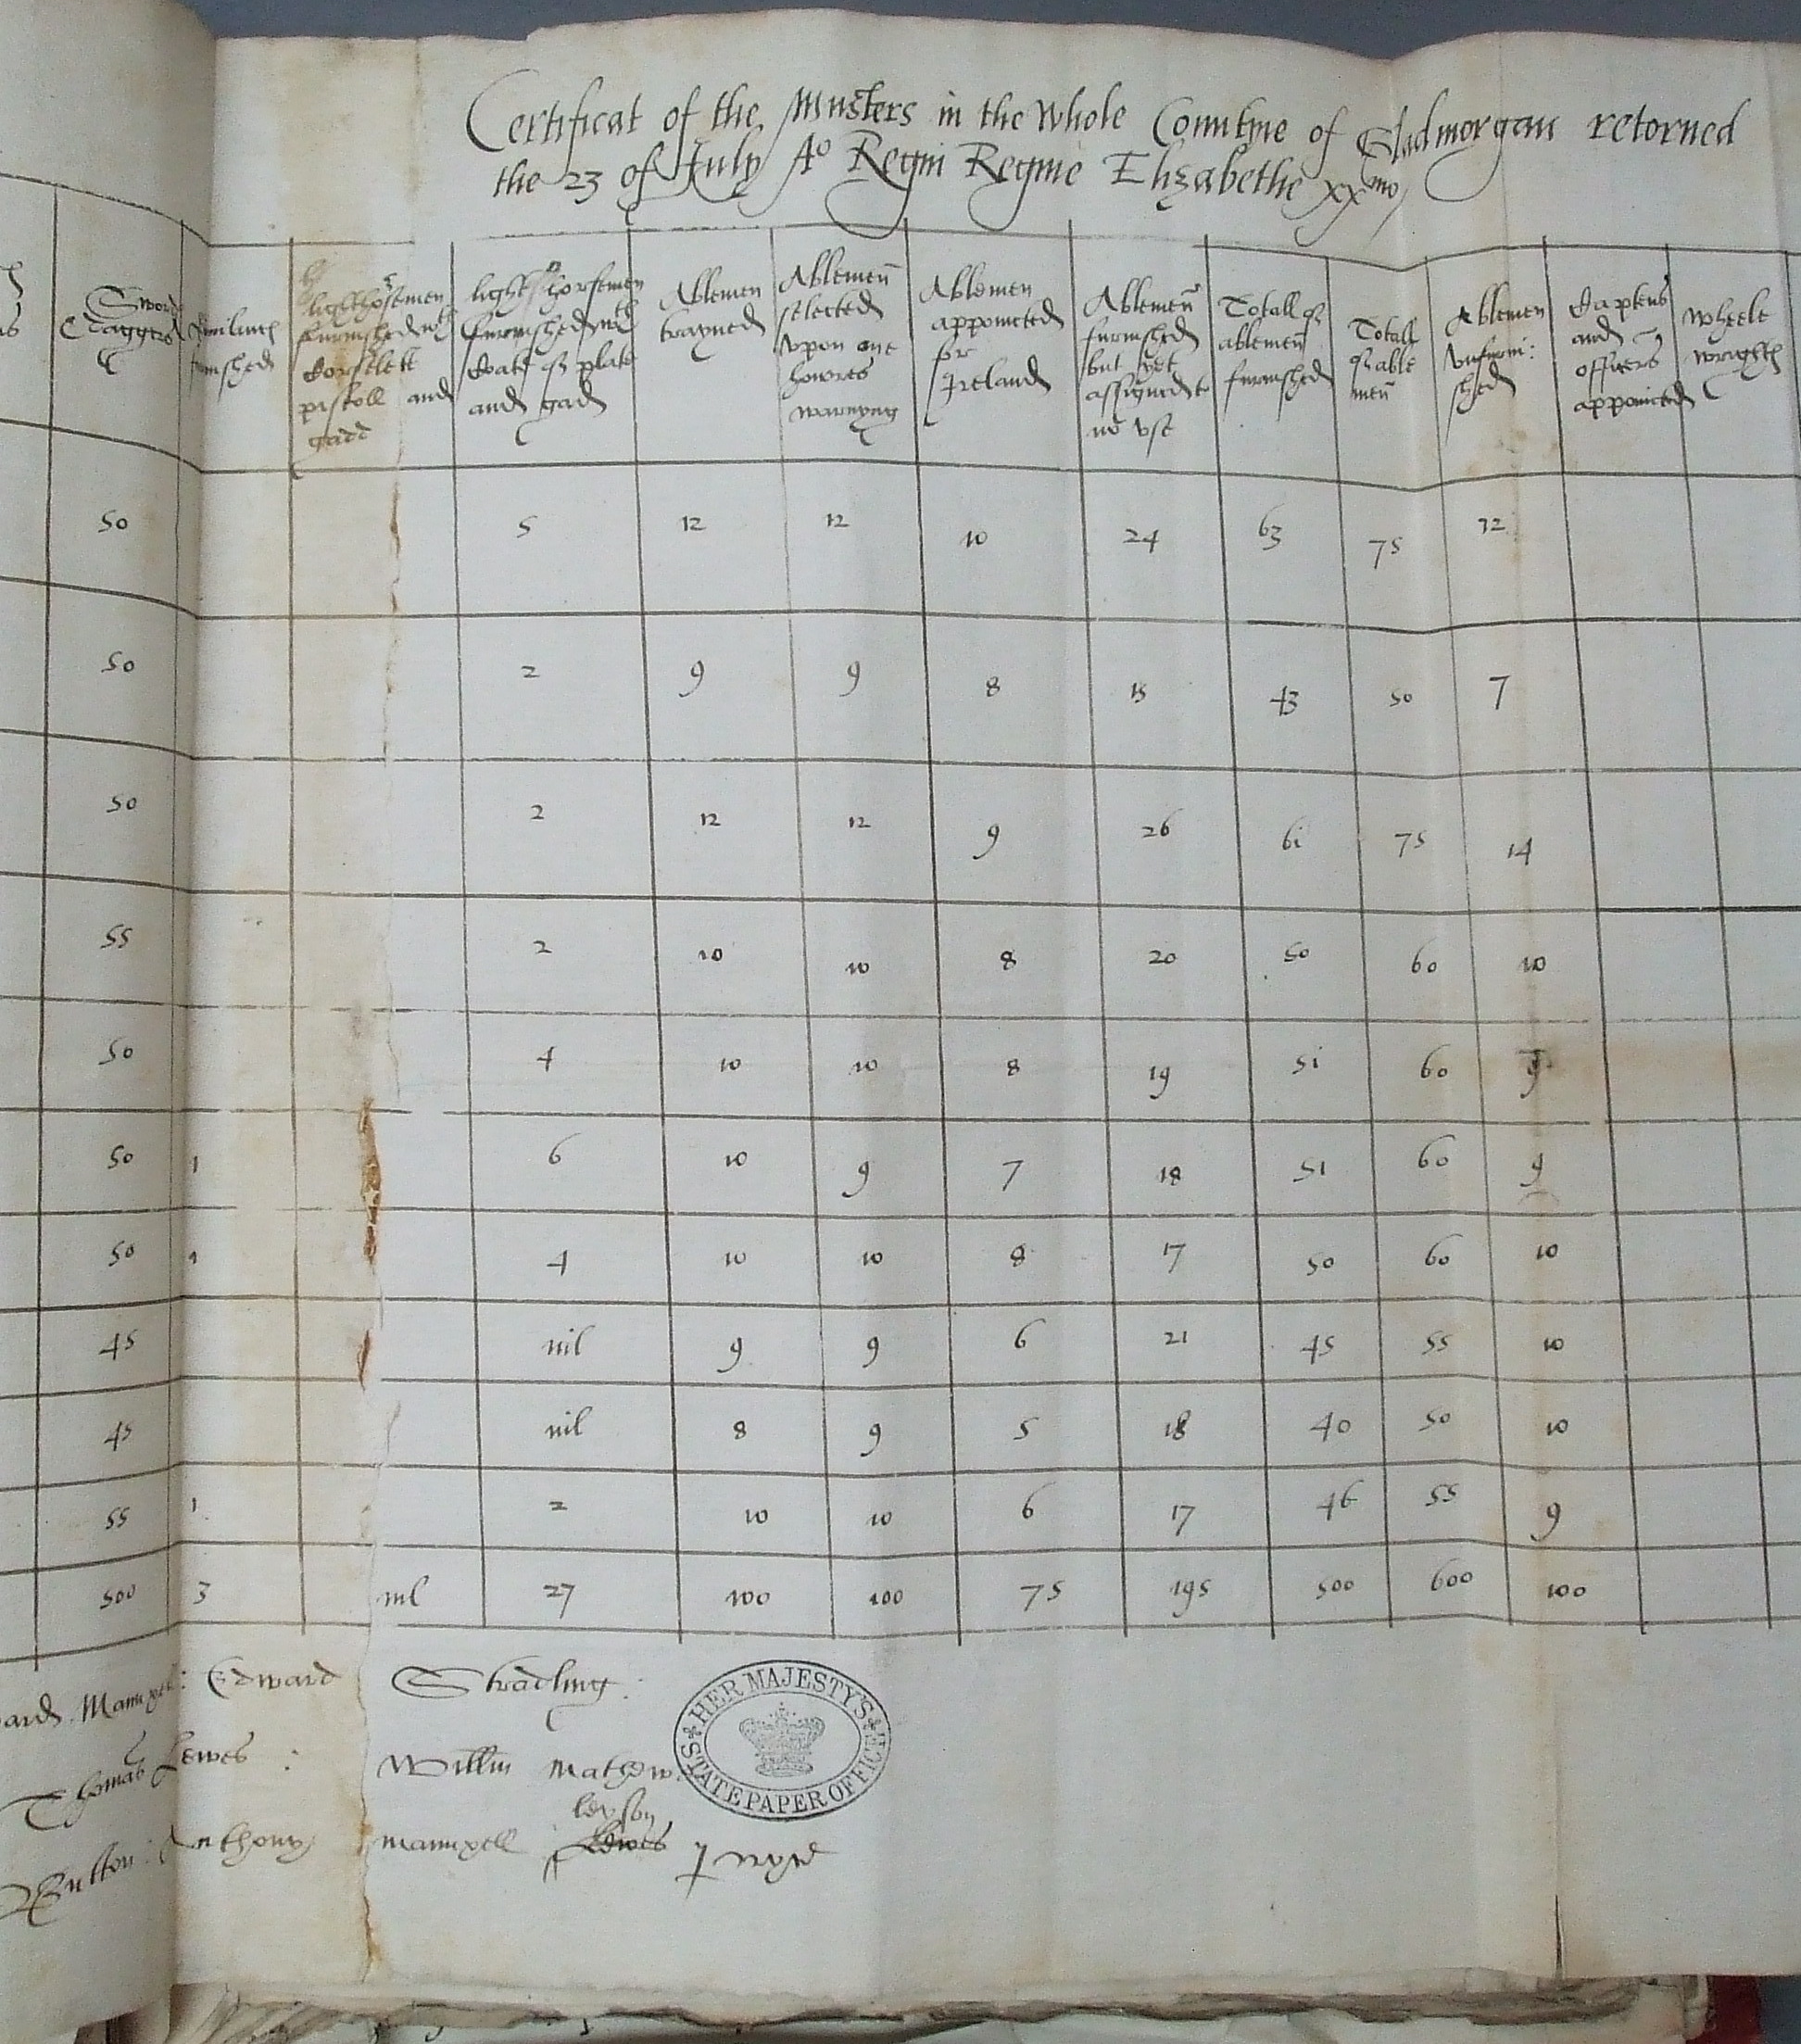 Certificat of the Musters in the Whole Countye of Gladmorgan retorned
the 23 of July A° Regni Regine Elizabethe xx^mo
Sword
Daggers
furnished
light horsemen
furnished wth
Corselett
pistoll and
gadd
light horsemen
furnished wth
Coate of plate
and gad
Ablemen
trayned
Ablemen
selected
vpon one
howres
warnyng
Ablemen
appointed
for
Ireland
Ablemen
furnished
but yet
assigned to
no vse
Totall of
ablemen
furnished
Totall
of able
men
Ablemen
vnfurni:
shed
Captens
and
officers
appointed
Wheele
wrights
50 5 12 12 10 24 63 75 12
50 2 9 9 8 15 43 50 7
50 2 12 12 9 26 6i 75 14
55 2 10 10 8 20 50 60 10
50 4 10 10 8 19 5i 60 9
50 1 6 10 9 7 18 51 60 9
50 1 4 10 10 8 17 50 60 10
45 nil 9 9 6 21 45 55 10
45 nil 8 9 5 18 40 50 10
55 1 2 10 10 6 17 46 55 9
500 3 nil 27 100 100 75 195 500 600 100
Mannxell: Edward Stradling:
Thomas Lewes : Willm Mathew:
leyson
Button: Anthony mannxell Lewes
HER MAJESTY'S
STATE PAPER OFFICE